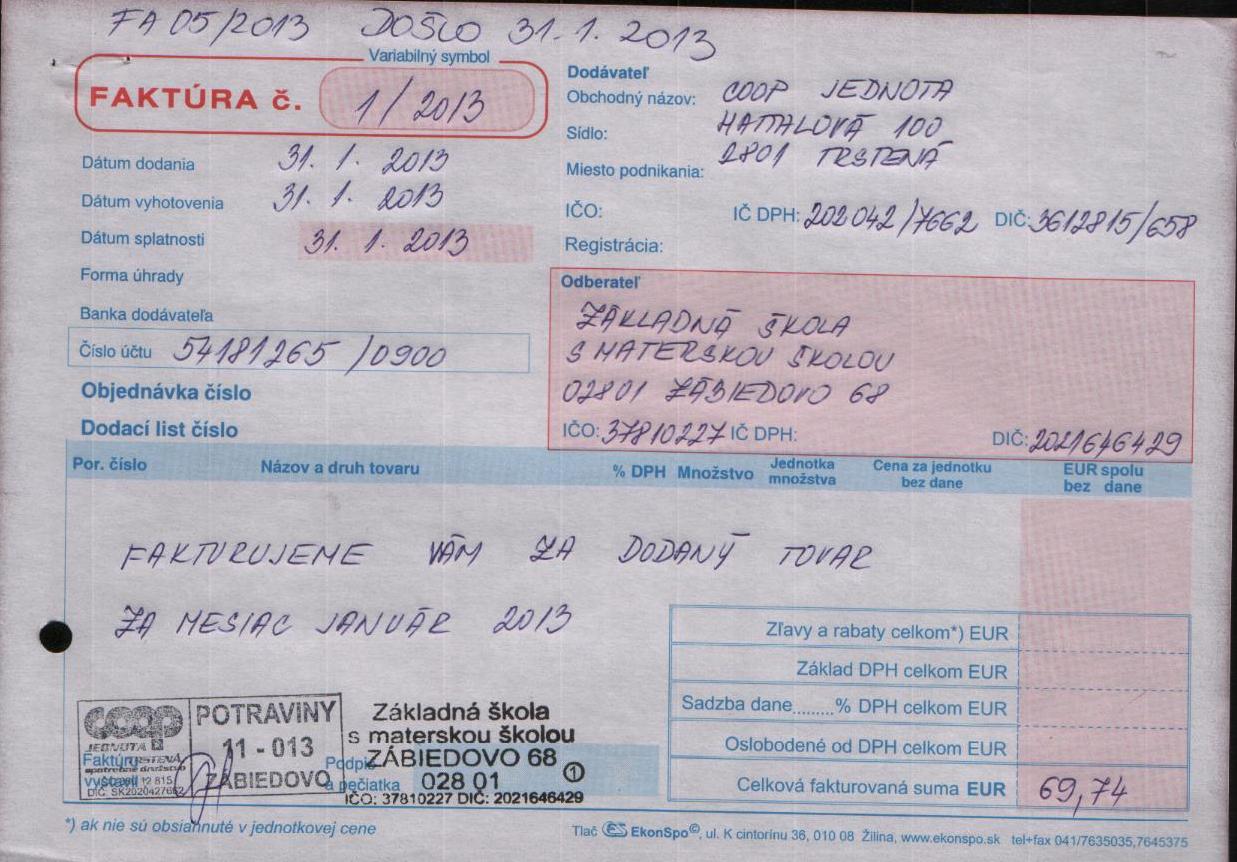 FA 05/2013 DOŠLO 31.1. 2013
Variabilný symbol
FAKTÚRA č. 1/2013
Dátum dodania 31. 1. 2013
Dátum vyhotovenia 31. 1. 2013
Dátum splatnosti 31. 1. 2013
Forma úhrady
Banka dodávateľa
Číslo účtu 54181265 /0900
Objednávka číslo
Dodací list číslo
Dodávateľ
Obchodný názov: COOP JEDNOTA
Sídlo: HATTALOVÁ 100
Miesto podnikania: 2801 TRSTENÁ
IČO: IČ DPH: 202042/7662 DIČ: 3612815/658
Registrácia:
Odberateľ
ZÁKLADNÁ ŠKOLA
S MATERSKOU ŠKOLOU
02801 ZÁBIEDOVO 68
IČO: 37810227 IČ DPH: DIČ: 2021646429
Por. číslo Názov a druh tovaru % DPH Množstvo Jednotka množstva Cena za jednotku bez dane EUR spolu bez dane
FAKTURUJEME VÁM ZA DODANÝ TOVAR
ZA MESIAC JANUÁR 2013
Zľavy a rabaty celkom*) EUR
Základ DPH celkom EUR
Sadzba dane........% DPH celkom EUR
Oslobodené od DPH celkom EUR
Celková fakturovaná suma EUR 69,74
coop
JEDNOTA
TRSTENÁ
spotrebné družstvo
POTRAVINY
11 - 013
ZÁBIEDOVO
Faktúru
vystavil
Základná škola
s materskou školou
ZÁBIEDOVO 68
028 01 1
IČO: 37810227 DIČ: 2021646429
a pečiatka
*) ak nie sú obsiahnuté v jednotkovej cene
Tlač ES EkonSpo©, ul. K cintorínu 36, 010 08 Žilina, www.ekonspo.sk tel+fax 041/7635035,7645375